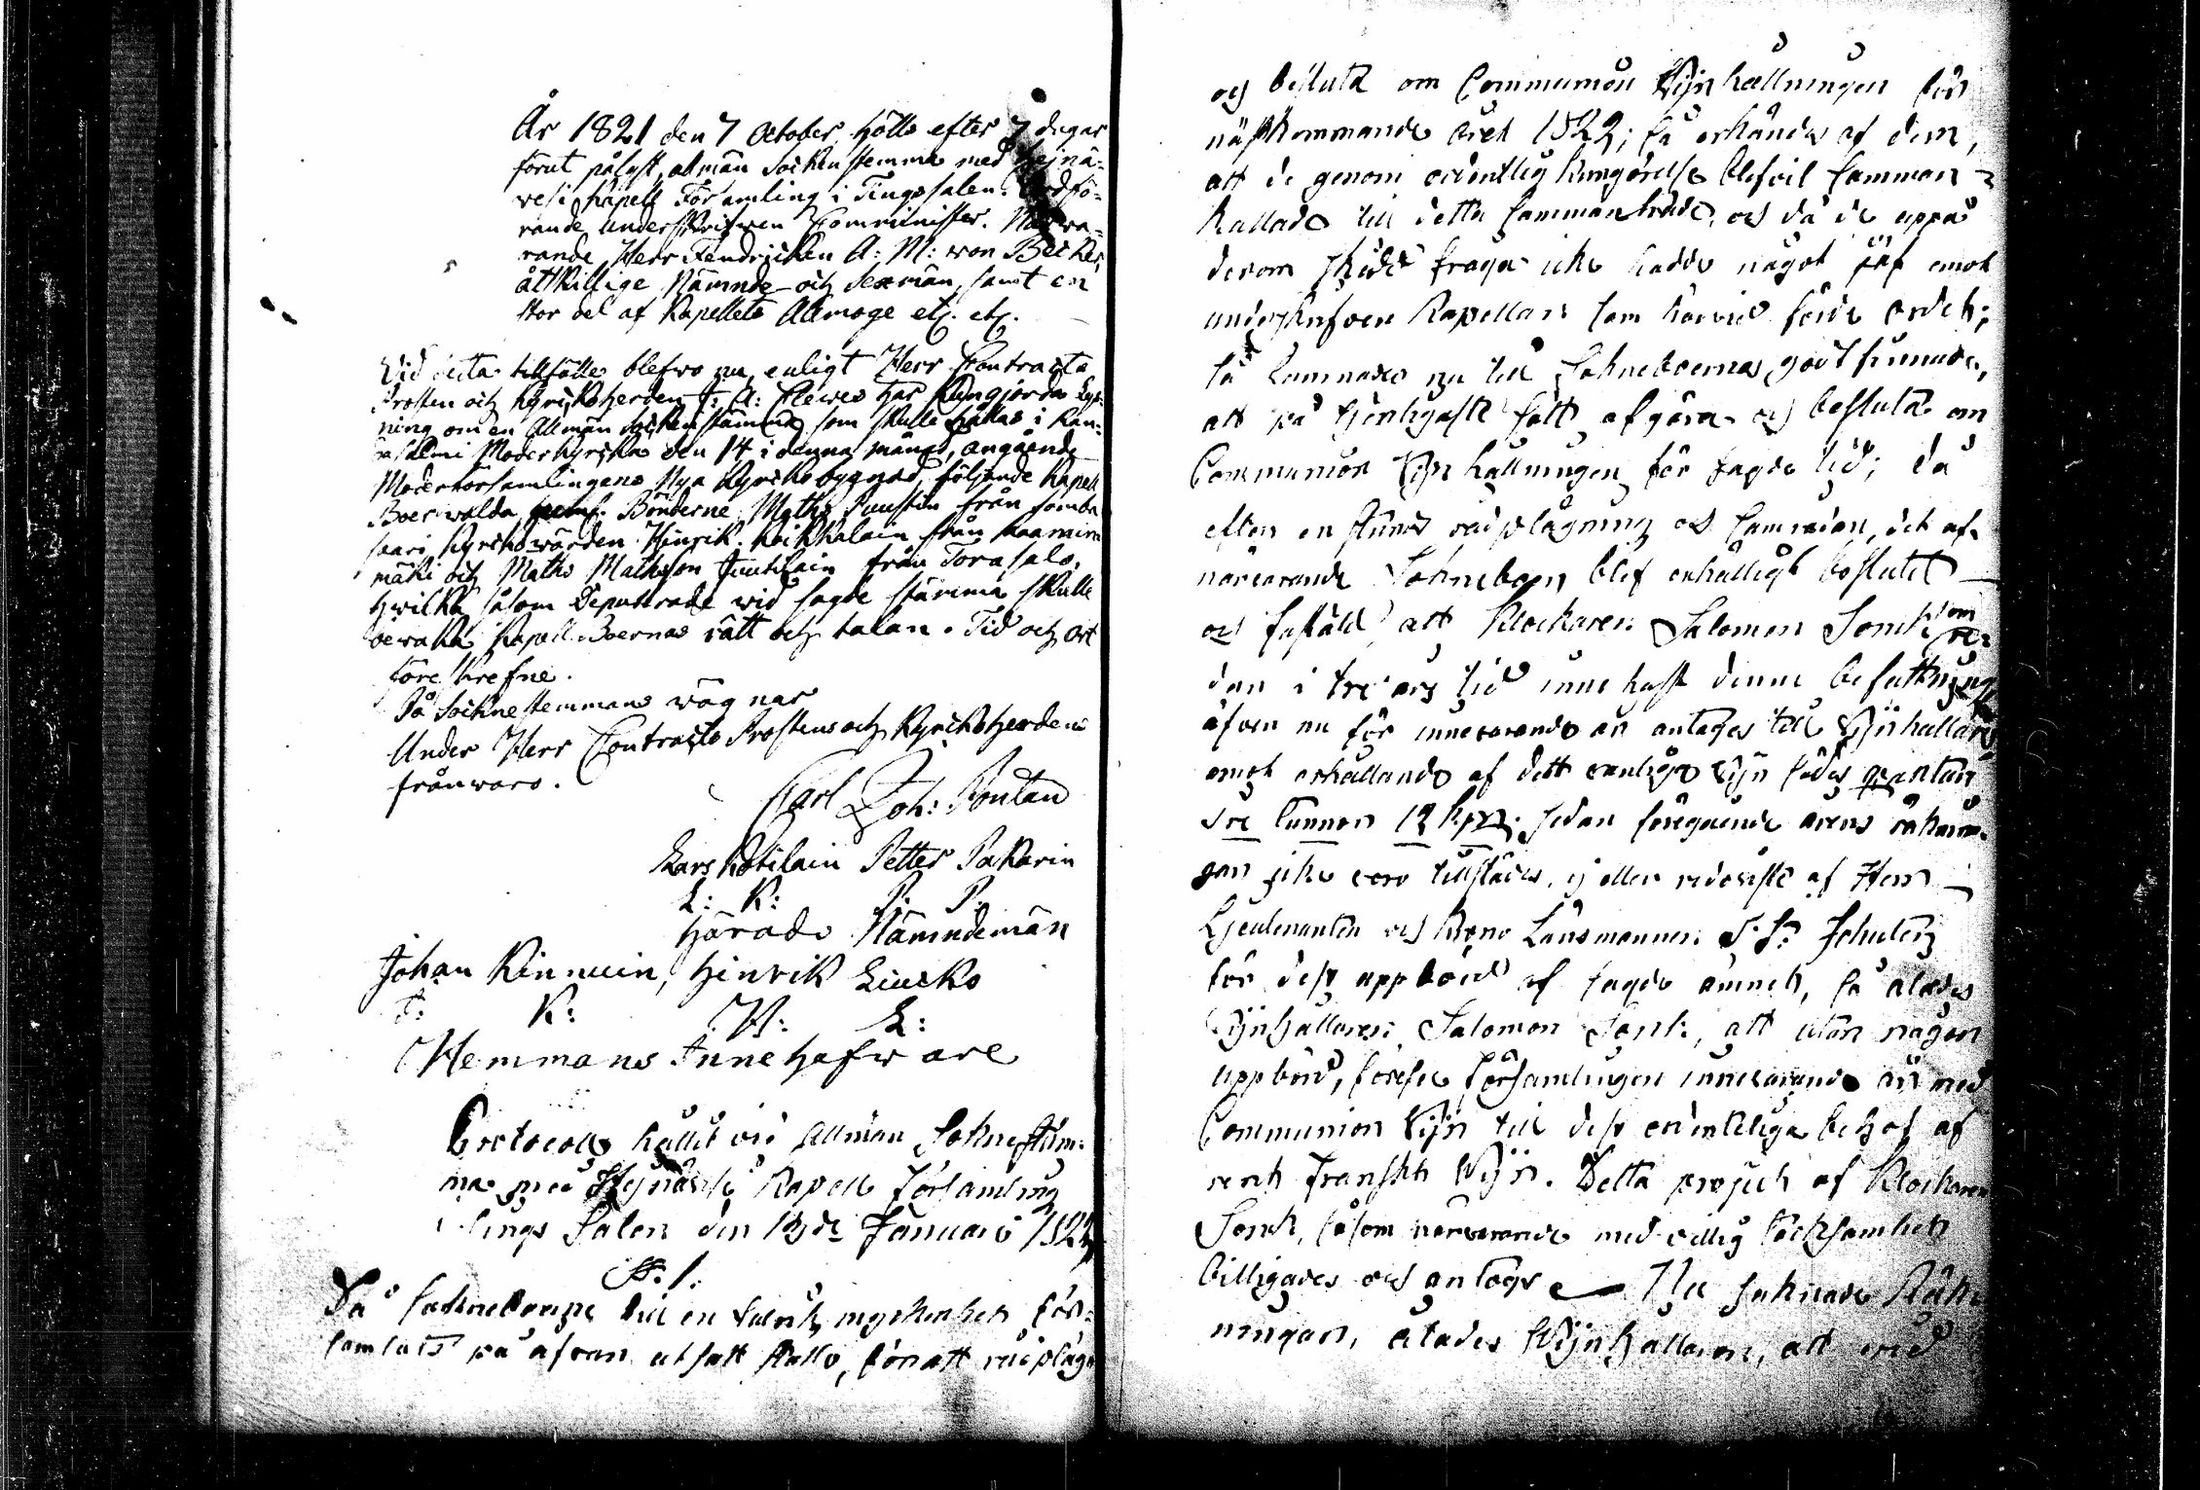 År 1821 den 7 October hölls efter 7 dagar
förut pålyst, alman Sockenstemma med Hejnä-
vesi Kapell Församling i Tingssalen. Ordfö-
rande underskrifwen Comminister. Närwa-
rande Herr Fendricken A: M: von Becker,
åtskillige Nämnde- och Sexmän, samt en
stor del af Kapellets Allmoge etc. etc.
Vid detta tillfälle blefwo nu, enligt Herr Contracts
Prosten och Kyrckoherden J: A: Clewes har Kungjorda Lys-
ning om en Allmän Sockenstämma som skulle hållas i Ran-
tasalmi Moderkyrcka den 14 i denna månad, angående
Moderförsamlingens Nya Kyrckobyggnad, följande Kapell
Boer walda, Bönderne Maths Puustin från Somba
saari, Kyrckowärden Hinrik Koikkalain från Kaarmin
mäki och Maths Mathsson Juutilain från Torasalo,
hwilka såsom Deputerade wid sagde stämma skulle
bewaka Kapell-Boernas rätt och talan. Tid och ort
föreskrefne.
På Socknestemmans wägnar
Under Herr Contracts Prostens och Kyrckoherdens
frånwaro.
Carl Joh: Pontan
Lars Kotilain Petter Pakarin
L: K: P. P.
Härads Nämndemän
Johan Kinnuin, Hinrik Liucko
J: K: H: L:
Hemmans Innehafware
Protocoll hållit vid allmän Sokne Stäm-
ma med Hejnävesi Kapell Församling
i Tings Salen den 13de Januari 1822
§. 1.
Då Sockneboerne till en talrik myckenhet för-
samlats på åfvan utsatt ställe, för att rådplåga
och besluta om Communion Vijnhållningen för
nästkommande året 1822; så erkändes af dem,
att de genom ordentlig kungörelse blefvit samman-
kallade till detta sammanträde, och då de uppå
derom skedd fråga icke hadde något jäf emot
underskrifven Kapellan som härvid förde ordet;
så lemnades nu till Sokneboernas godtfinnande,
att på tjenligaste sätt afgöra och besluta om
Communion Vijnhållningen för sagde tid; då
efter en stunds rådplägning och samråd, det af
närvarande Sokneboer blef enhälligt beslutet
och faststäld, att Klockaren Salomon Sonck, som re-
dan i tre års tid innehaft denne befattning
äfven nu för innevarande år antages till Vijnhållare
emot erhållande af dett vanliga Vijn sädes quantum
tre Tunnor 12 kpr; sedan föregående årens räknin-
gar icke voro tillstädes, ej eller redoviste af Herr
Lieutenanten och Krono Länsmannen S: F: Schulin
för dess uppbörd af sagde ämnet, så åtades
Vijnhållaren Salomon Sonck, att utan någon
uppbörd, förese församlingen innevarande år med
Communion Vijn till dess ordenteliga behof af
rent franskt Vijn. Detta project af Klockaren
Sonck, såsom närvarande med villig tacksamhet
billigades och antogs Nu saknade Räk-
ningar, åtades Vijnhållaren, att vid